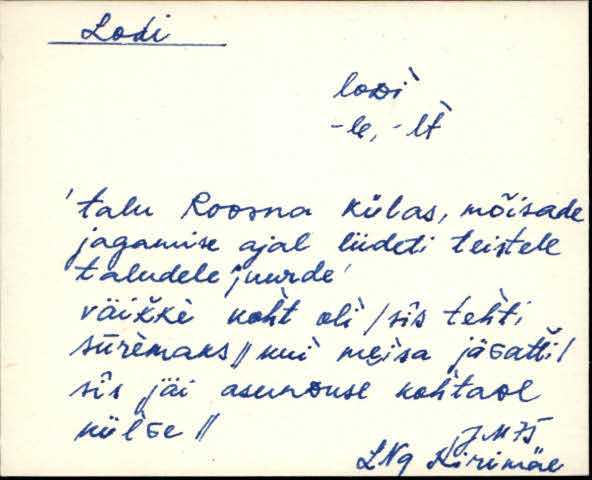 Lodi
loᴅì
-le, -lt̀
'talu Roosna külas, mõisade
jagamise ajal liideti teistele
taludele juurde'
väik̆kè koht oli / sîs tehti
sǖremaks // kui meisa jäGatti /
sîs jäi asunDuse kohtaDe
külGe //
J.M 75
LNg Kirimäe